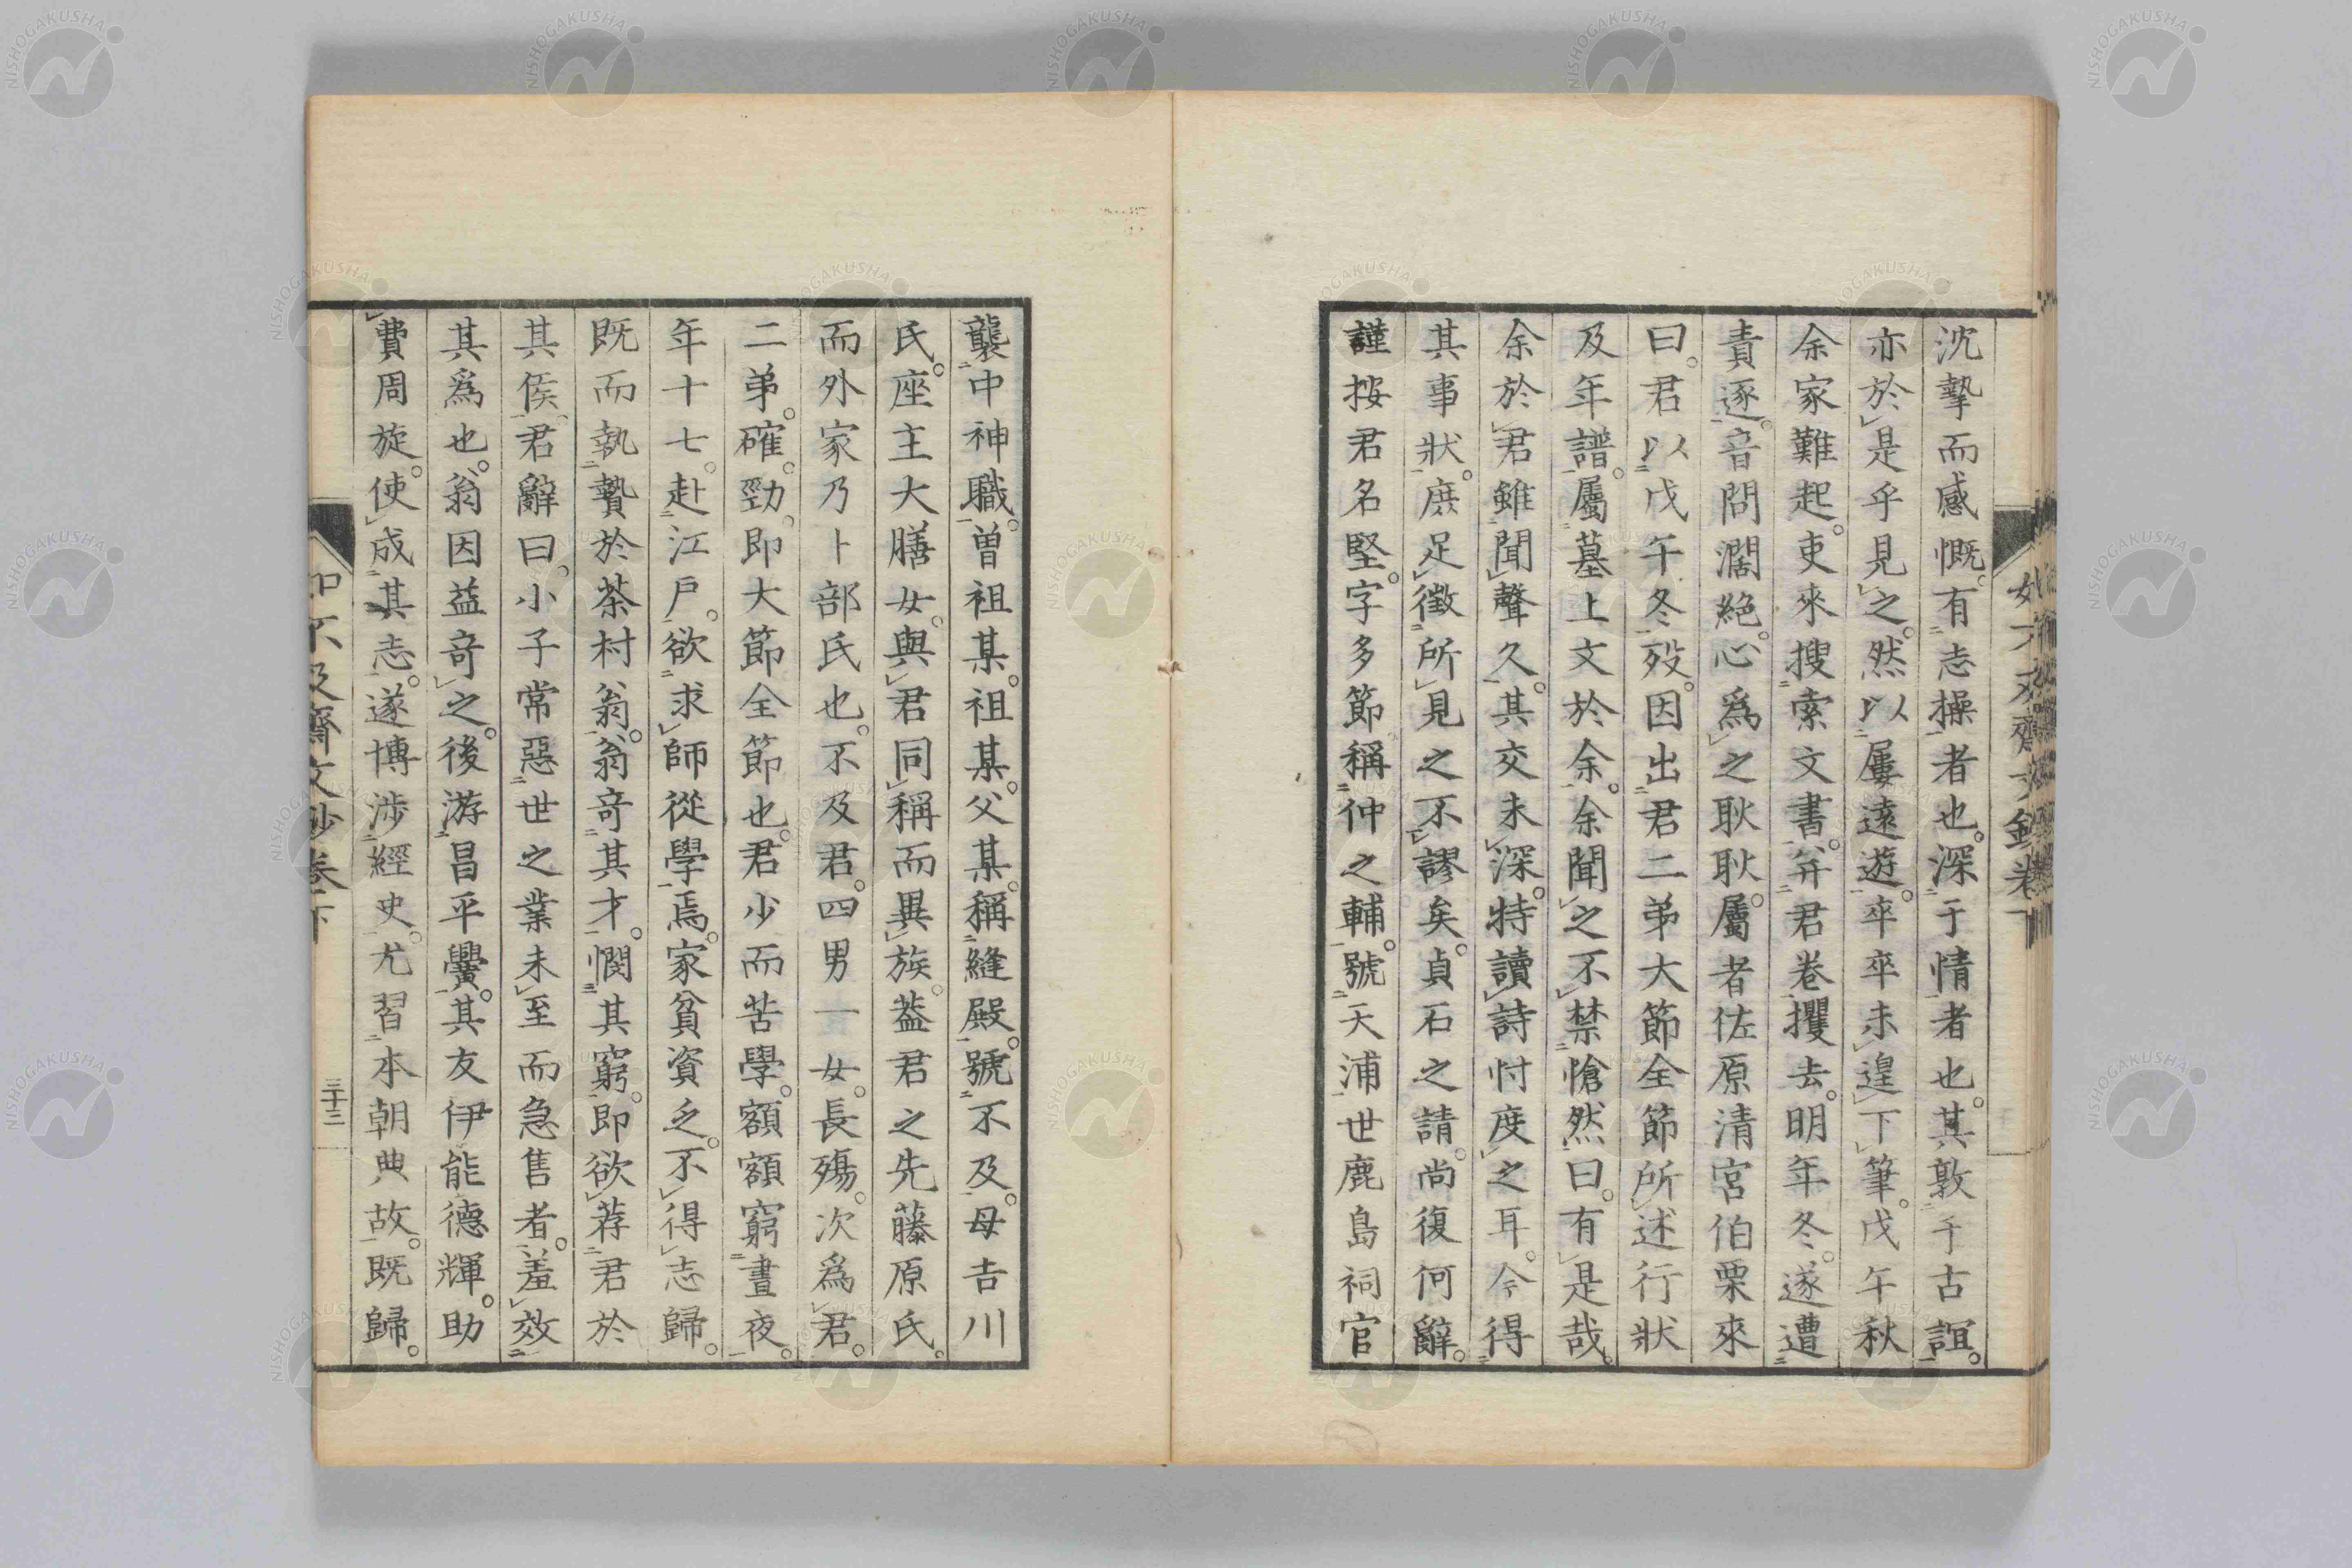 沈摯而感慨。有志操者也。深于情者也。其敦于古誼。
亦於是乎見之。然以屢遠遊。卒卒未遑下筆。戊午秋
余家難起。吏來搜索文書。并君卷攫去。明年冬。遂遭
責逐。音問濶絶。心爲之耿耿。屬者佐原清宮伯栗來
曰。君以戊午冬歿。因出君二弟大節全節所述行狀
及年譜。屬墓上文於余。余聞之不禁愴然曰。有是哉。
余於君雖聞聲久。其交未深。特讀詩忖度之耳。今得
其事狀。庶足徵所見之不謬矣。貞石之請。尚復何辭。
謹按君名堅。字多節。稱仲之輔。號天浦。世鹿島祠官
襲中神職。曽祖某。祖某。父某。稱縫殿。號不及。母吉川
氏。座主大膳女。與君同稱而異族。葢君之先藤原氏。
而外家乃卜部氏也。不及君。四男一女。長殤。次爲君。
二弟。確。勁。即大節全節也。君少而苦學。額額窮晝夜。
年十七。赴江戸。欲求師從學焉。家貧資乏。不得志歸。
既而執贄於茶村翁。翁奇其才。憫其窮。即欲荐君於
其侯。君辭曰。小子常惡世之業未至而急售者。羞效
其爲也。翁因益奇之。後游昌平黌。其友伊能德輝。助
費周旋。使成其志。遂博渉經史。尤習本朝典故。既歸。
如不及齋文鈔卷下
三十三
NISHOGAKUSHA